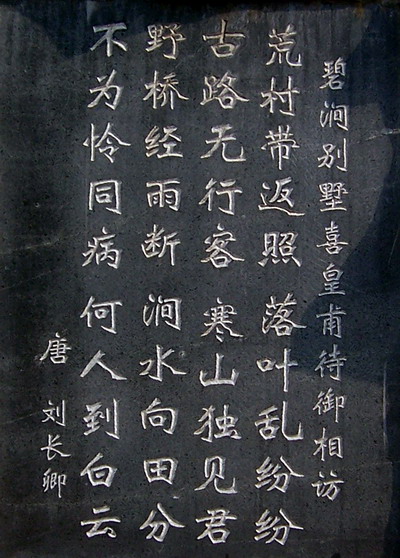 碧涧别墅喜皇甫待御相访
荒村带返照 落叶乱纷纷
古路无行客 寒山独见君
野桥经雨断 涧水向田分
不为怜同病 何人到白云
唐 刘长卿